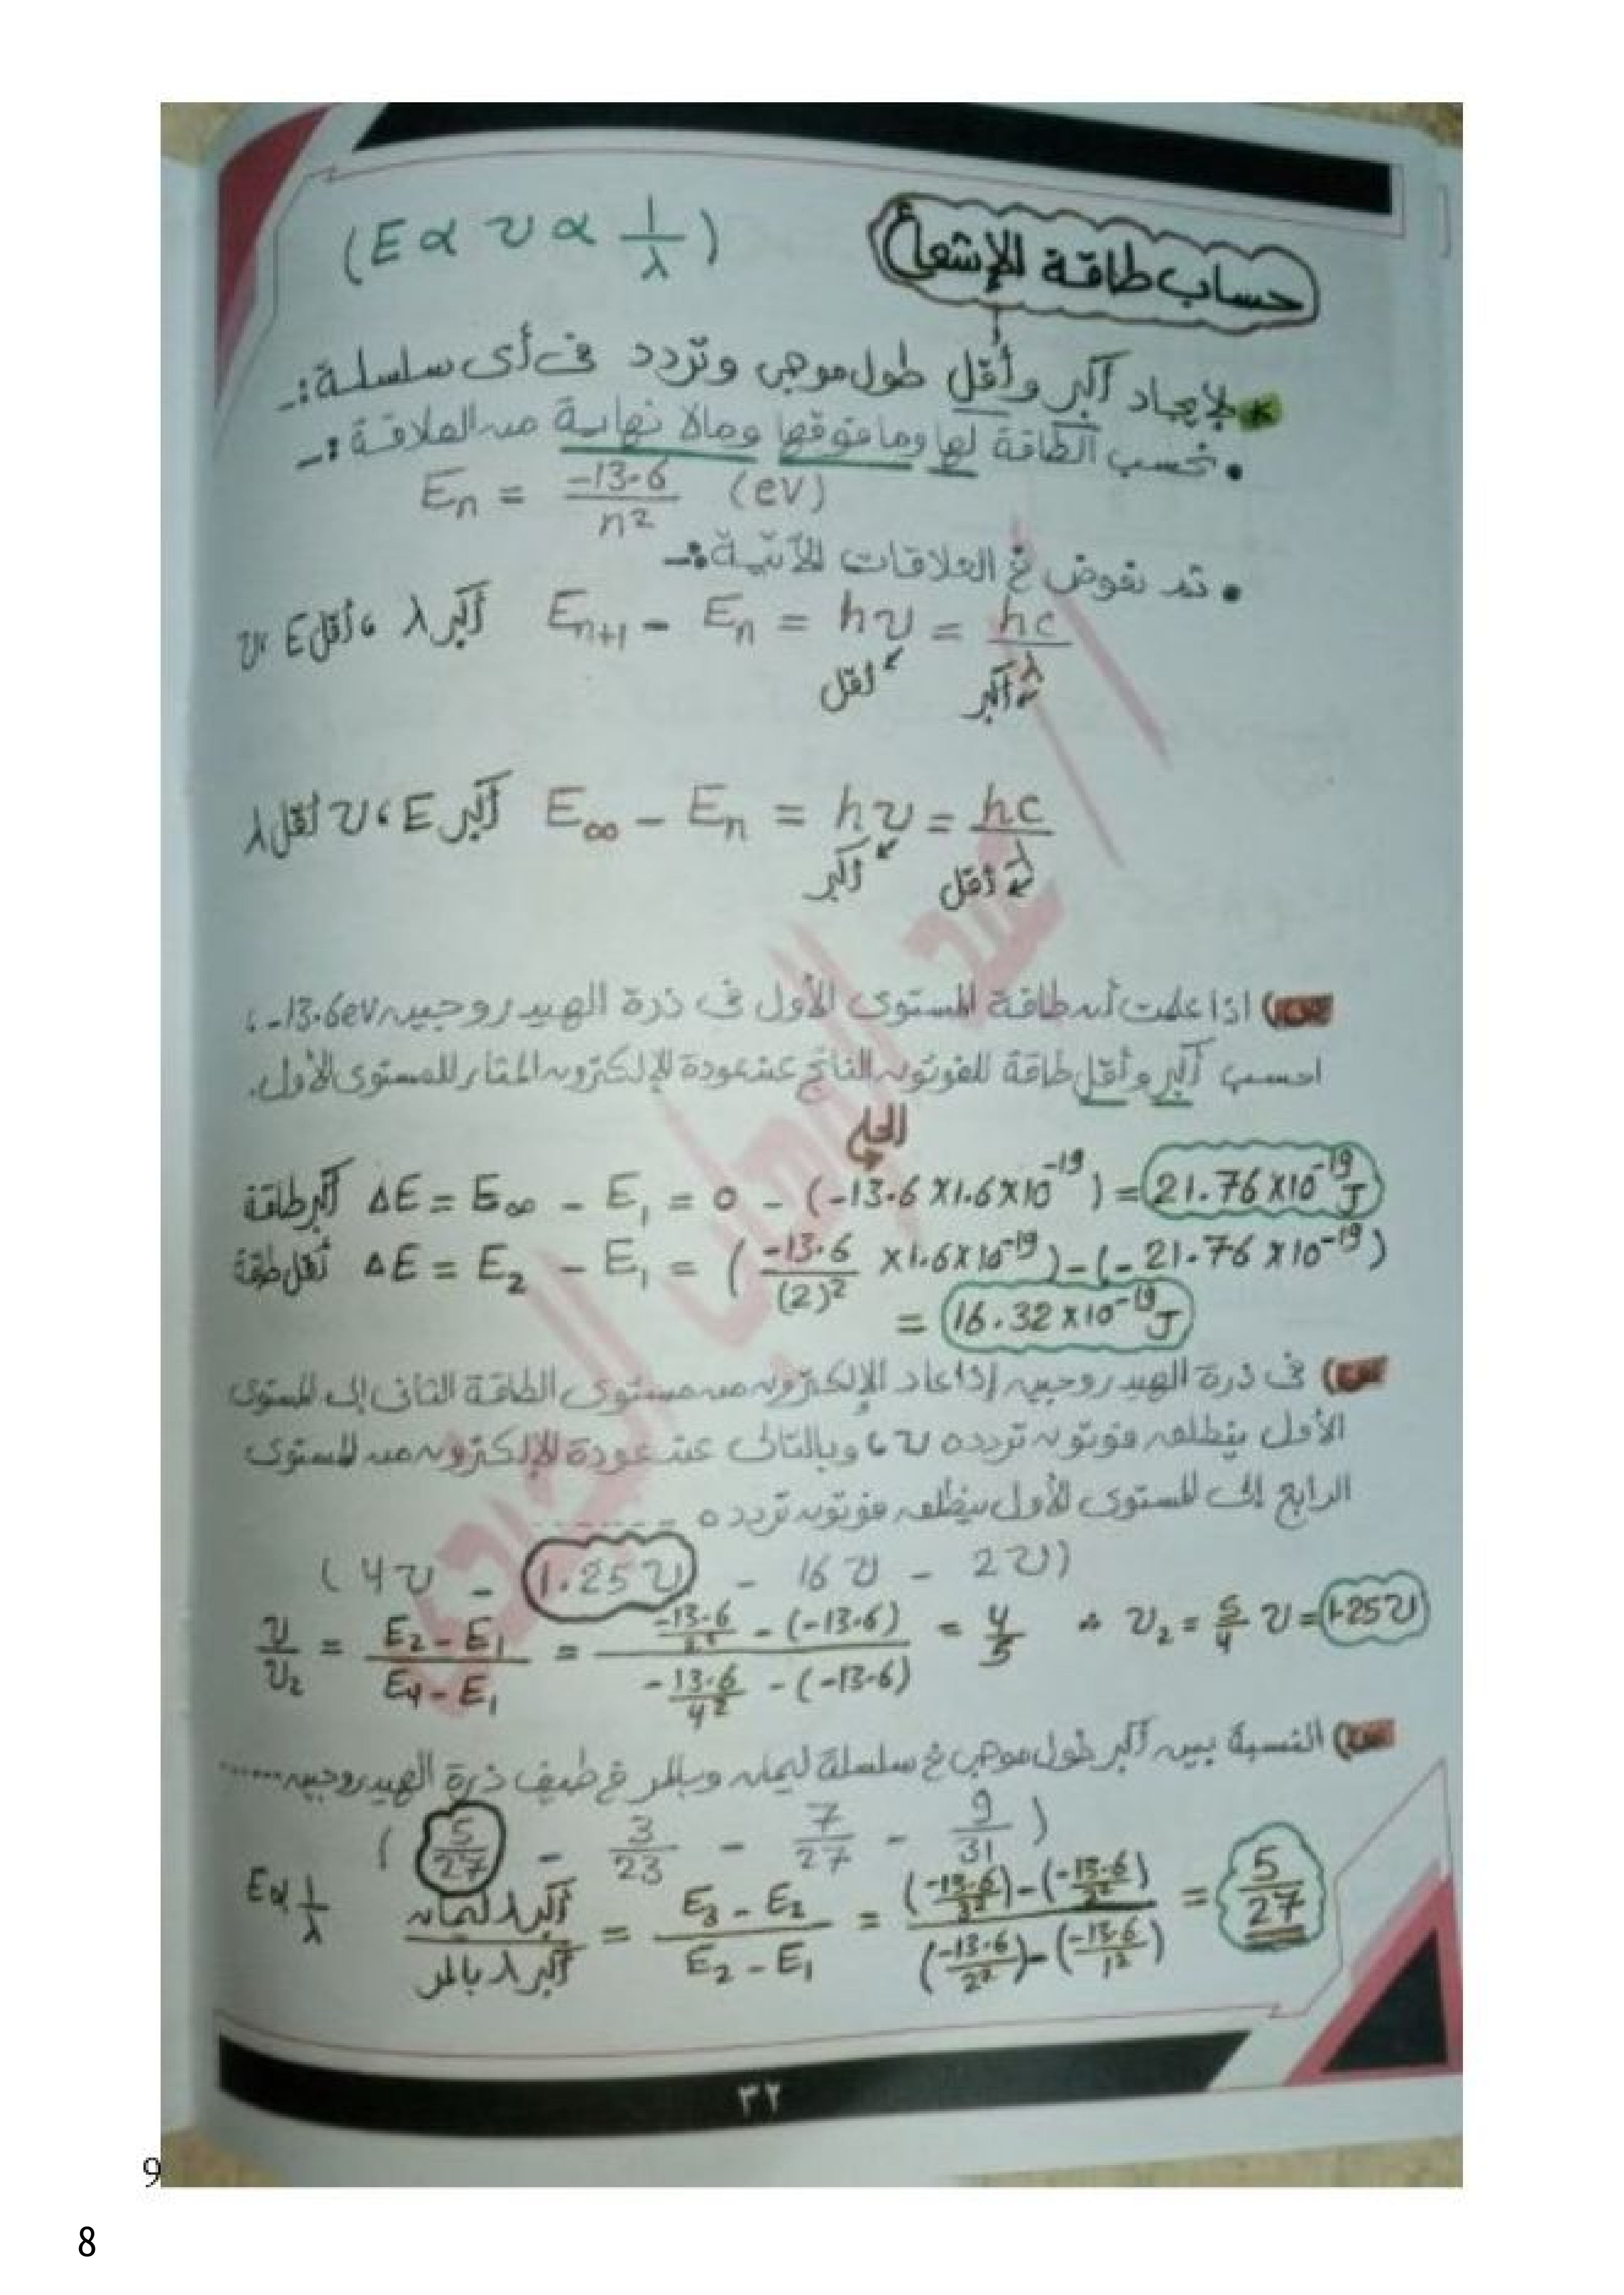 حساب طاقة الإشعاع (E ∝ υ ∝ 1/λ)
* لإيجاد أكبر وأقل طول موجى وتردد فى أى سلسلة :-
• نحسب الطاقة لها وما فوقها وما لا نهاية من العلاقة :-
En = -13.6/n² (ev)
• ثم نعوض فى العلاقات الآتية :-
υ، E أكبر λ ، أقل En+1 - En = hυ = hc/λ
أقل أكبر
أقل λ υ ، E أكبر E∞ - En = hυ = hc/λ
أكبر أقل
س) اذا علمت أن طاقة المستوى الأول فى ذرة الهيدروجين -13.6ev ،
احسب أكبر وأقل طاقة للفوتون الناتج عند عودة الإلكترون المثار للمستوى الأول.
الحل
أكبر طاقة ΔE = E∞ - E1 = 0 - (-13.6 x1.6x10^-19) = 21.76 x10^-19 J
أقل طاقة ΔE = E2 - E1 = (-13.6/(2)² x1.6x10^-19) - (-21.76 x10^-19)
= 16.32 x10^-19 J
س) فى ذرة الهيدروجين إذا عاد الإلكترون من مستوى الطاقة الثانى إلى المستوى
الأول ينطلق فوتون تردده υ ، وبالتالى عند عودة الإلكترون من المستوى
الرابع إلى المستوى الأول ينطلق فوتون تردده ........
(4υ - 1.25υ - 16υ - 2υ)
υ/υ2 = (E2 - E1)/(E4 - E1) = (-13.6/2² - (-13.6))/(-13.6/4² - (-13.6)) = 4/5 ∴ υ2 = 5/4 υ = 1.25υ
س) النسبة بين أكبر طول موجى فى سلسلة ليمان وبالمر فى طيف ذرة الهيدروجين ......
(5/27 - 3/23 - 7/27 - 9/31)
E ∝ 1/λ أكبر λ ليمان/أكبر λ بالمر = (E3 - E2)/(E2 - E1) = ((-13.6/3²) - (-13.6/2²))/((-13.6/2²) - (-13.6/1²)) = 5/27
٣٢
9
8